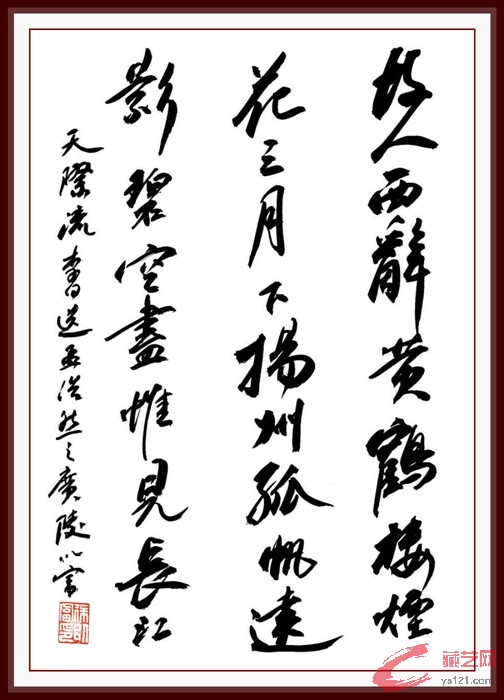 故人西辭黄鶴樓煙
花三月下揚州孤帆遠
影碧空盡惟見長江
天際流 書送孟浩然之廣陵
藏艺网
ys121.com